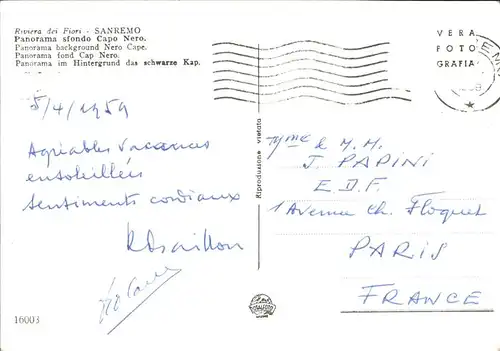 Riviera dei Fiori - SANREMO
Panorama sfondo Capo Nero.
Panorama background Nero Cape.
Panorama fond Cap Nero.
Panorama im Hintergrund das schwarze Kap.
VERA
FOTO
GRAFIA
5/4/1959
Agréables vacances
ensoleillées
Sentiments cordiaux
Riproduzione vietata
J. PAPINI
E.D.F.
1 Avenue Ch. Floquet
PARIS
FRANCE
16003